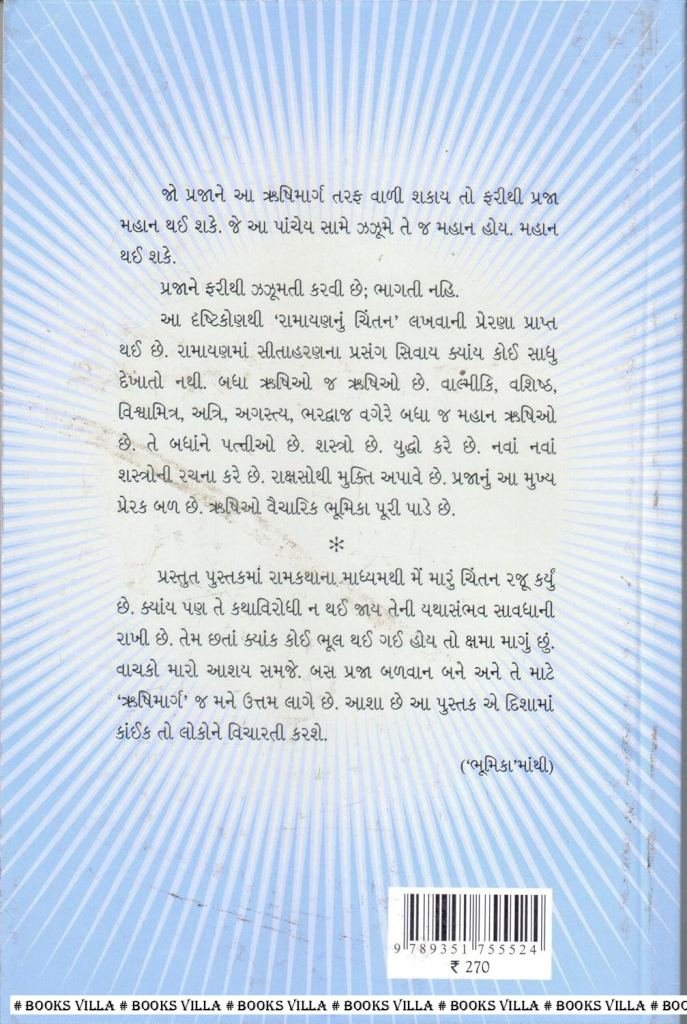 જો પ્રજાને આ ઋષિમાર્ગ તરફ વાળી શકાય તો ફરીથી પ્રજા
મહાન થઈ શકે. જે આ પાંચેય સામે ઝઝૂમે તે જ મહાન હોય. મહાન
થઈ શકે.
પ્રજાને ફરીથી ઝઝૂમતી કરવી છે; ભાગતી નહિ.
આ દૃષ્ટિકોણથી ‘રામાયણનું ચિંતન’ લખવાની પ્રેરણા પ્રાપ્ત
થઈ છે. રામાયણમાં સીતાહરણના પ્રસંગ સિવાય ક્યાંય કોઈ સાધુ
દેખાતો નથી. બધા ઋષિઓ જ ઋષિઓ છે. વાલ્મીકિ, વશિષ્ઠ,
વિશ્વામિત્ર, અત્રિ, અગસ્ત્ય, ભરદ્વાજ વગેરે બધા જ મહાન ઋષિઓ
છે. તે બધાંને પત્નીઓ છે. શસ્ત્રો છે. યુદ્ધો કરે છે. નવાં નવાં
શસ્ત્રોની રચના કરે છે. રાક્ષસોથી મુક્તિ અપાવે છે. પ્રજાનું આ મુખ્ય
પ્રેરક બળ છે. ઋષિઓ વૈચારિક ભૂમિકા પૂરી પાડે છે.
*
પ્રસ્તુત પુસ્તકમાં રામકથાના માધ્યમથી મેં મારું ચિંતન રજૂ કર્યું
છે. ક્યાંય પણ તે કથાવિરોધી ન થઈ જાય તેની યથાસંભવ સાવધાની
રાખી છે. તેમ છતાં ક્યાંક કોઈ ભૂલ થઈ ગઈ હોય તો ક્ષમા માગું છું.
વાચકો મારો આશય સમજે. બસ પ્રજા બળવાન બને અને તે માટે
‘ઋષિમાર્ગ’ જ મને ઉત્તમ લાગે છે. આશા છે આ પુસ્તક એ દિશામાં
કાંઈક તો લોકોને વિચારતી કરશે.
(‘ભૂમિકા’માંથી)
9 789351 755524
₹ 270
# BOOKS VILLA # BOOKS VILLA # BOOKS VILLA # BOOKS VILLA # BOOKS VILLA # BOOKS VILLA # BOO